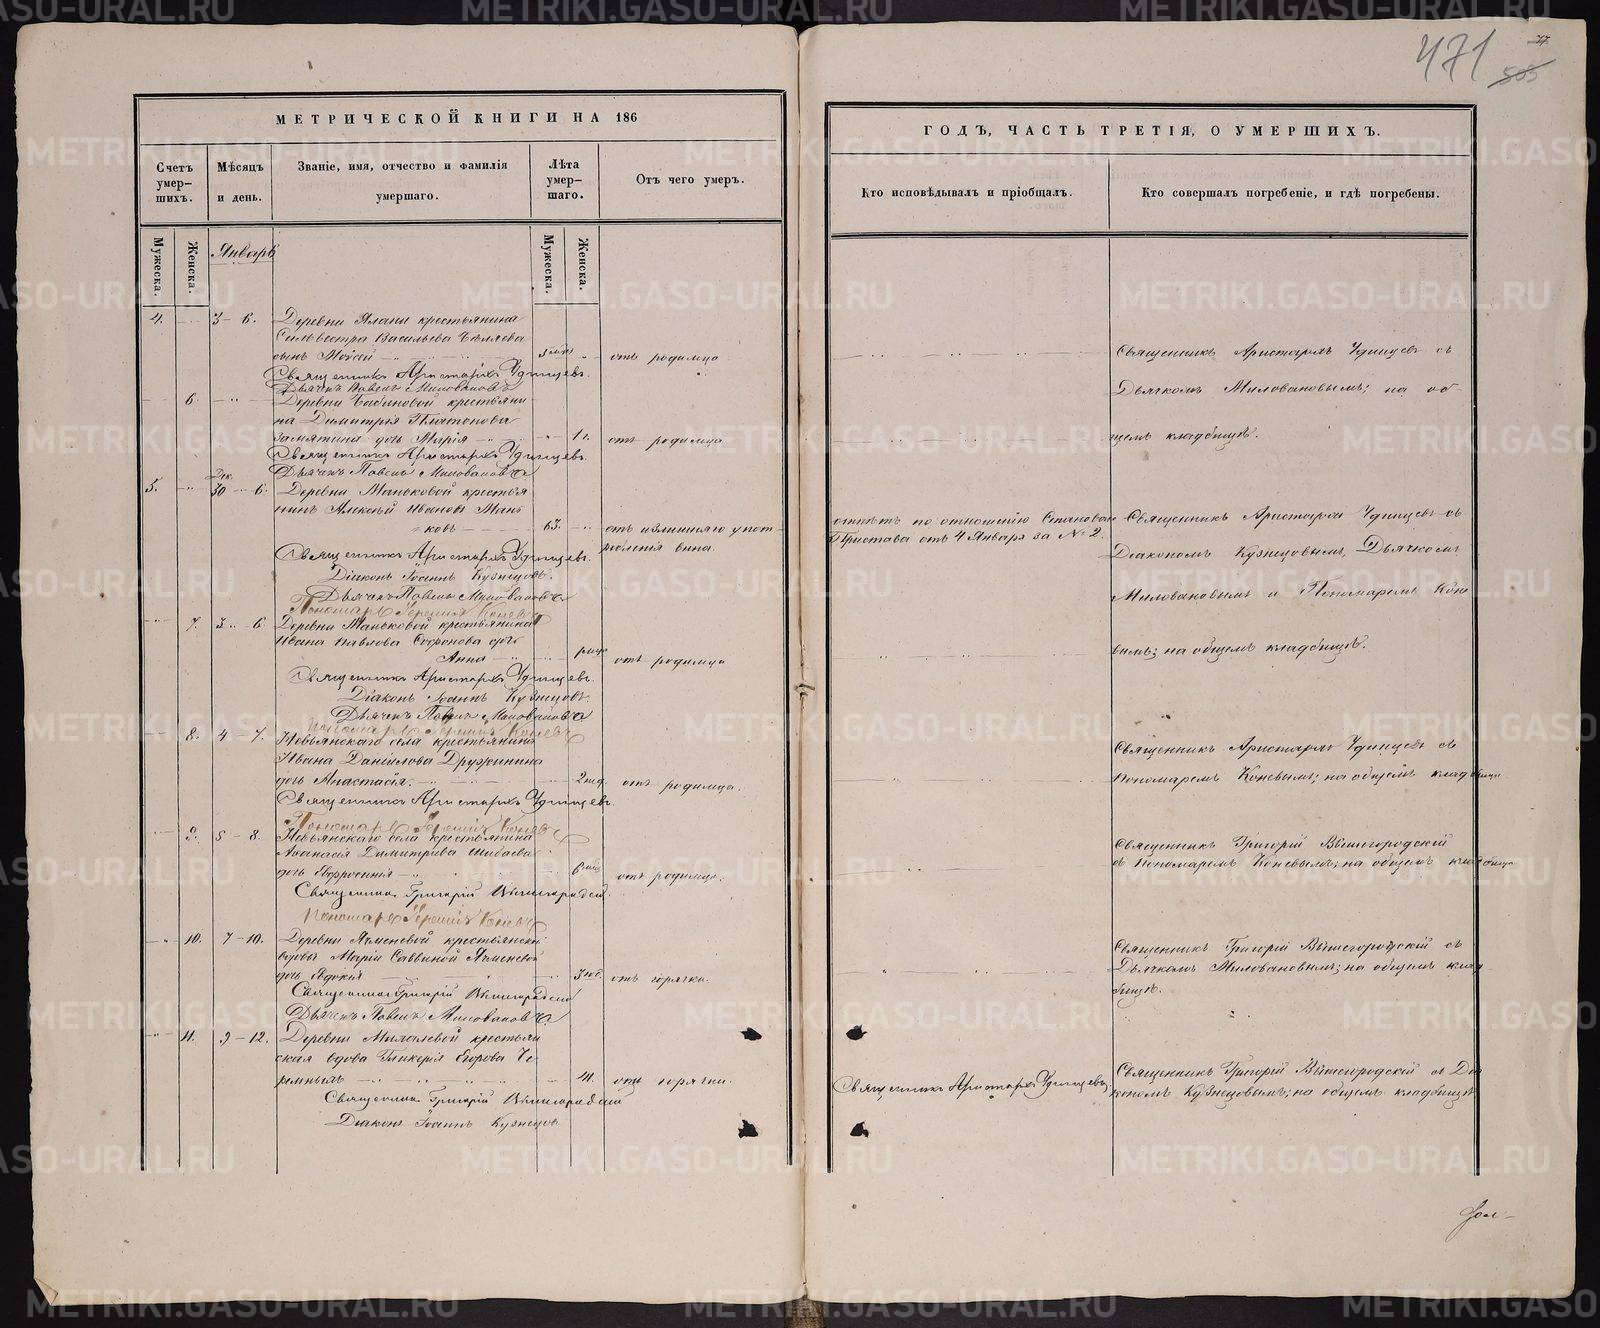 471
505
77
МЕТРИЧЕСКОЙ КНИГИ НА 186
Счетъ умер-шихъ.
Мѣсяцъ и день.
Званіе, имя, отчество и фамилія умершаго.
Лѣта умер-шаго.
Отъ чего умеръ.
Мужеска.
Женска.
Январь
Мужеска.
Женска.
4.
3 - 6.
Деревни Ялани крестьянина
Сильвестра Васильева Бѣляева
сынъ Моисей
отъ родимца
Священникъ Аристархъ Удинцевъ.
Дьячекъ Павелъ Миловановъ
6.
Деревни Бабиновой крестьяни-
на Димитрія Платонова
Замятина дочь Марія
1 г.
отъ родимца
Священникъ Аристархъ Удинцевъ.
Дьячекъ Павелъ Миловановъ
5.
Дек.
30 - 6.
Деревни Маньковой крестья-
нинъ Алексѣй Ивановъ Мань-
ковъ
63.
отъ излишняго упот-
ребленія вина.
Священникъ Аристархъ Удинцевъ.
Діаконъ Іоаннъ Кузнецовъ.
Дьячекъ Павелъ Миловановъ
Пономарь Іеремія Коневъ
7.
3 - 6
Деревни Маньковой крестьянина
Ивана Павлова Софонова дочь
Анна
отъ родимца
Священникъ Аристархъ Удинцевъ.
Діаконъ Іоаннъ Кузнецовъ
Дьячекъ Павелъ Миловановъ
Пономарь Іеремія Коневъ
8.
4 - 7.
Невьянскаго села крестьянина
Ивана Данилова Дружинина
дочь Анастасія.
2 нед.
отъ родимца.
Священникъ Аристархъ Удинцевъ.
Пономарь Іеремія Коневъ
9.
5 - 8.
Невьянскаго села крестьянина
Аѳанасія Димитріева Шибаева
дочь Евфросинія
отъ родимца.
Священникъ Григорій Вышегородскій.
Пономарь Іеремія Коневъ
10.
7 - 10.
Деревни Ячменевой крестьянской
вдовы Маріи Саввиной Ячменевой
дочь Евдокія
отъ горячки.
Священникъ Григорій Вышегородскій
Дьячекъ Павелъ Миловановъ
11.
9 - 12.
Деревни Михалевой крестьян-
ская вдова Гликерія Егорова Че-
ремныхъ
отъ горячки.
Священникъ Григорій Вышегородскій
Діаконъ Іоаннъ Кузнецовъ
ГОДЪ, ЧАСТЬ ТРЕТІЯ, О УМЕРШИХЪ.
Кто исповѣдывалъ и пріобщалъ.
Кто совершалъ погребеніе, и гдѣ погребены.
Священникъ Аристархъ Удинцевъ съ
Дьячкомъ Миловановымъ; на об-
щемъ кладбищѣ.
отпѣтъ по отношенію Становаго
Пристава отъ 4 Января за № 2.
Священникъ Аристархъ Удинцевъ съ
Діакономъ Кузнецовымъ, Дьячкомъ
Миловановымъ и Пономаремъ Коне-
вымъ; на общемъ кладбищѣ.
Священникъ Аристархъ Удинцевъ съ
Пономаремъ Коневымъ; на общемъ кладбищѣ
Священникъ Григорій Вышегородскій
съ Пономаремъ Коневымъ; на общемъ кладбищѣ
Священникъ Григорій Вышегородскій съ
Дьячкомъ Миловановымъ; на общемъ клад-
бищѣ.
Священникъ Аристархъ Удинцевъ.
Священникъ Григорій Вышегородскій съ Діа-
кономъ Кузнецовымъ; на общемъ кладбищѣ
METRIKI.GASO-URAL.RU